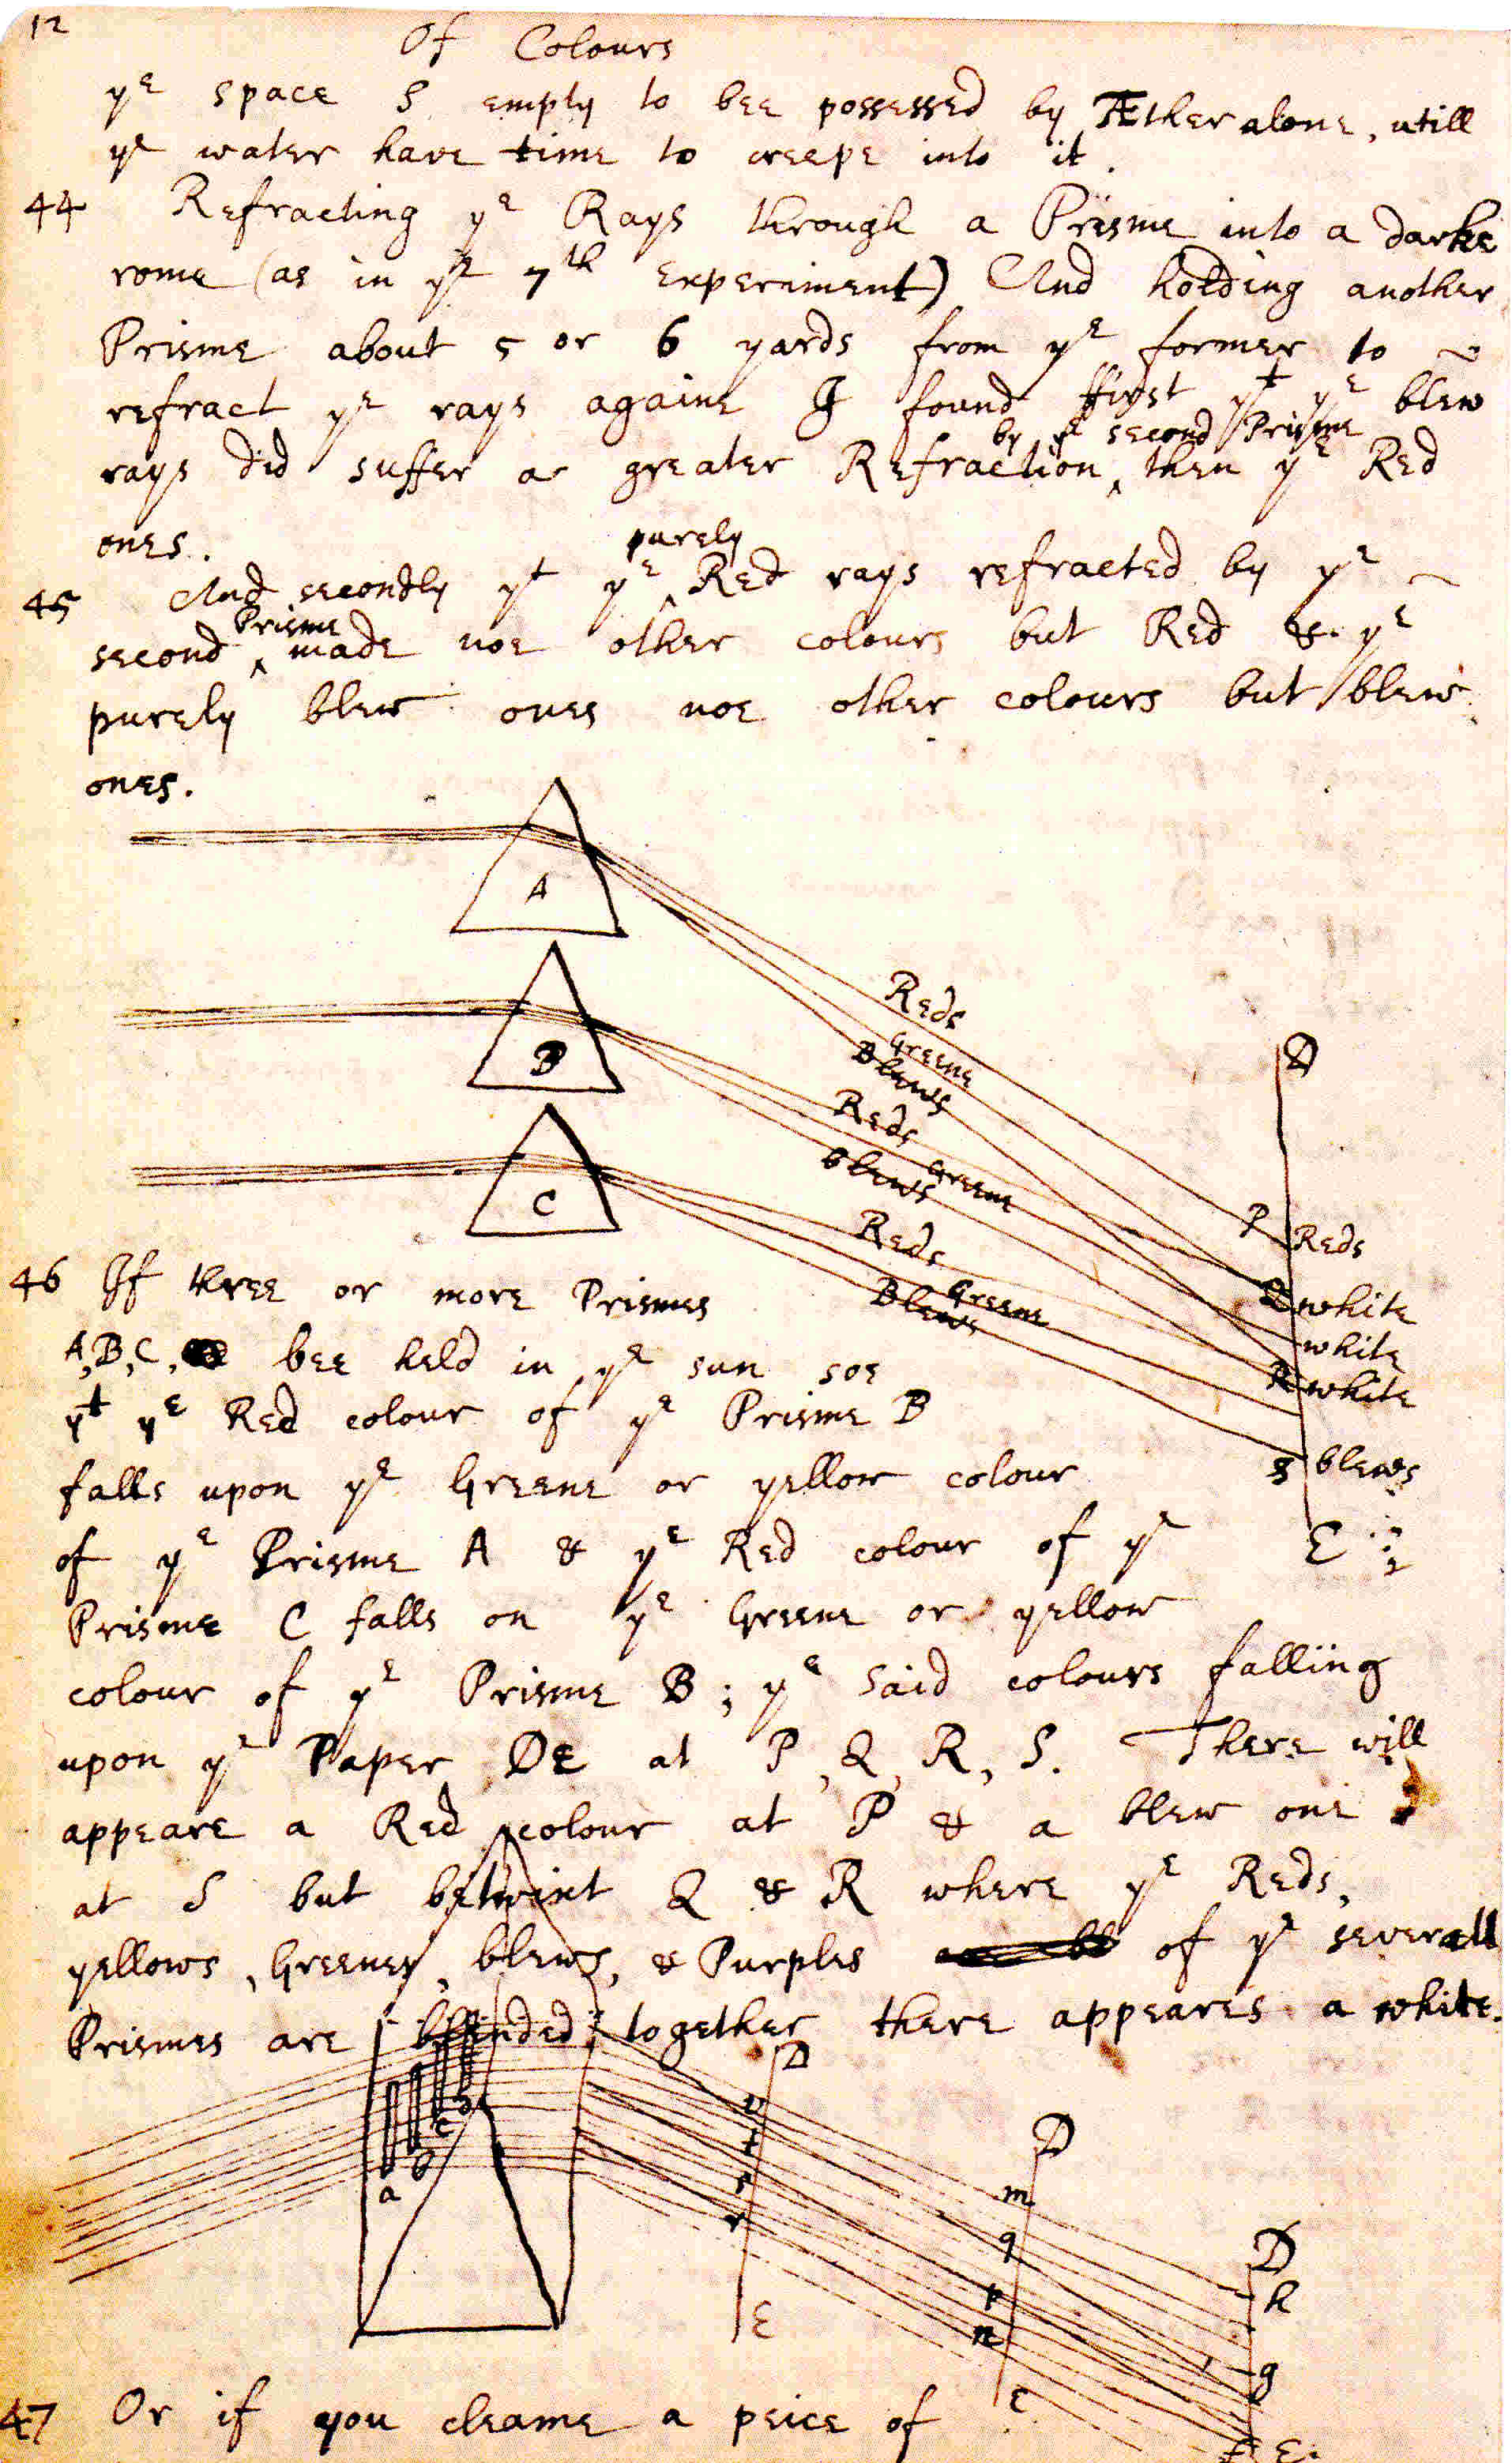 12
Of Colours
yᵉ space S empty to bee possessed by Æther alone, utill
yᵉ water have time to creepe into it.
44 Refracting yᵉ Rays through a Prisme into a darke
rome (as in yᵉ 7ᵗʰ Experiment) And holding another
Prisme about 5 or 6 yards from yᵉ former to ~
refract yᵉ rays againe I found ffirst yᵗ yᵉ blew
by yᵉ second Prisme
rays did suffer a greater Refraction ‸ then yᵉ Red
ones.
purely
45 And secondly yᵗ yᵉ ‸ Red rays refracted by yᵉ ~
Prisme
second ‸ made noe other colours but Red & yᵉ
purely blew ones noe other colours but blew
ones.
A
Reds
Greene
Blews
B
Reds
Greene
blews
C
Reds
Greene
Blews
D
P Reds
Q white
white
R white
S blews
E
46 If three or more Prismes
A, B, C, bee held in yᵉ sun soe
yᵗ yᵉ Red colour of yᵉ Prisme B
falls upon yᵉ Greene or yellow colour
of yᵉ Prisme A & yᵉ Red colour of yᵉ
Prisme C falls on yᵉ Greene or yellow
colour of yᵉ Prisme B; yᵉ said colours falling
upon yᵉ Paper DE at P, Q, R, S. There will
appeare a Red colour at P & a blew one
at S but betwixt Q & R where yᵉ Reds,
yellows, Greenes, blews, & Purples of yᵉ severall
Prismes are blended together there appeares a white.
a
b
c
D
v
t
s
r
E
D
m
q
p
n
E
D
h
g
E
47 Or if you cleame a peice of